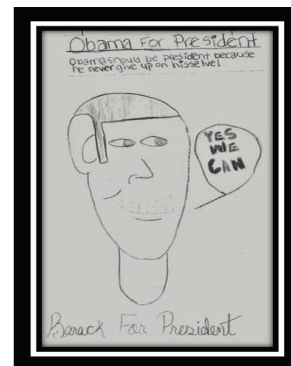 Obama For President
Obama should be president because
he never give up on hisselvel
YES
WE
CAN
Barack For President